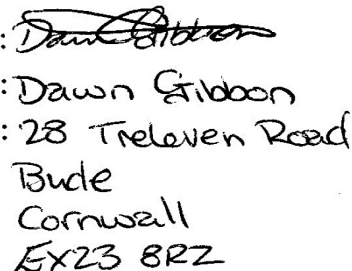 : Dawn Gibbon
: Dawn Gibbon
: 28 Treleven Road
Bude
Cornwall
EX23 8RZ